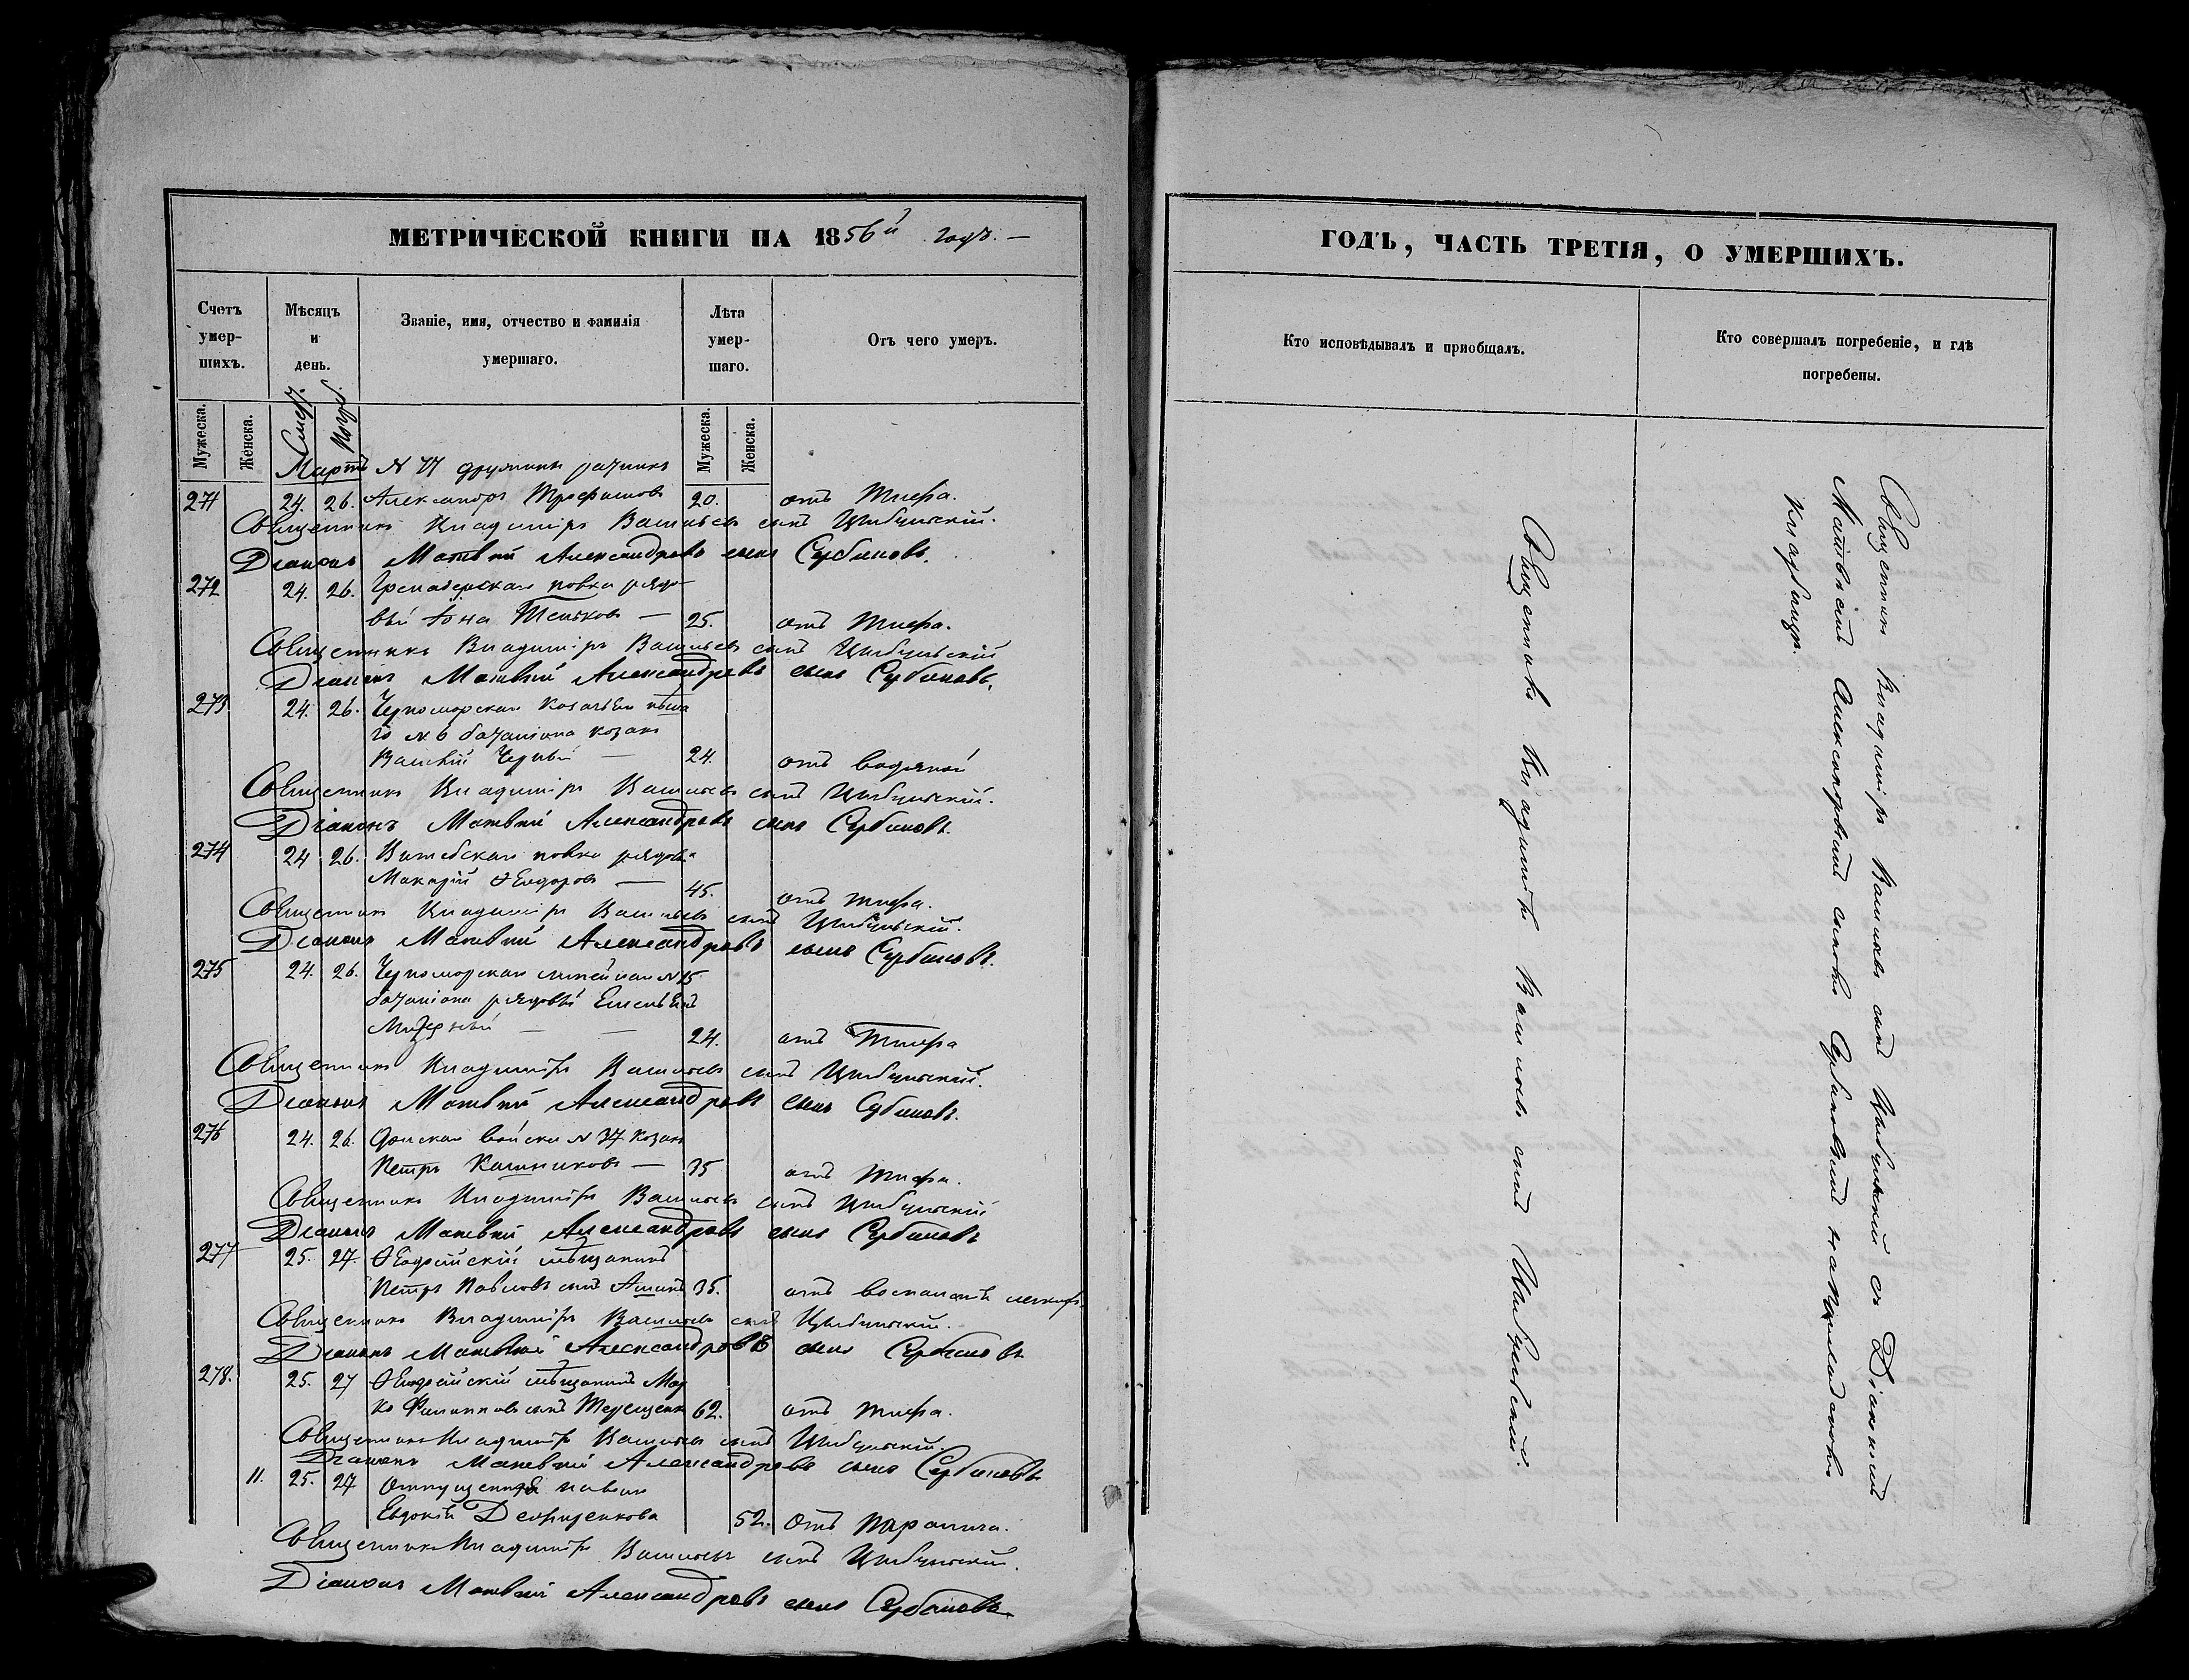 МЕТРИЧЕСКОЙ КНИГИ НА 1856й годъ. —
Счетъ умер-шихъ.
Мѣсяцъ и день.
Званіе, имя, отчество и фамилія умершаго.
Лѣта умер-шаго.
Отъ чего умеръ.
Мужеска. Женска. Смер. Погр. Мужеска. Женска.
Мартъ № 77 дружины ратникъ
271 24. 26. Александръ Трофимовъ 20. отъ Тифа.
Священникъ Владиміръ Васильевъ сынъ Цыбульскій.
Діаконъ Матвѣй Александровъ сынъ Сербиновъ.
272 24. 26. Гренадерскаго полка рядо-
вый Іона 25. отъ Тифа.
Священникъ Владиміръ Васильевъ сынъ Цыбульскій
Діаконъ Матвѣй Александровъ сынъ Сербиновъ.
273 24. 26. Черноморскаго Козачьяго пѣша
го № 6 баталіона козакъ
Василій Черный — 24. отъ водяной
Священникъ Владиміръ Васильевъ сынъ Цыбульскій.
Діаконъ Матвѣй Александровъ сынъ Сербиновъ.
274 24 26. Витебскаго полка рядов.
Макарій Ѳеодоровъ — 45. отъ тифа.
Священникъ Владиміръ Васильевъ сынъ Цыбульскій.
Діаконъ Матвѣй Александровъ сынъ Сербиновъ.
275 24. 26. Черноморскаго линейнаго № 15
баталіона рядовый Емельянъ
— — 24. отъ Тифа
Священникъ Владиміръ Васильевъ сынъ Цыбульскій.
Діаконъ Матвѣй Александровъ сынъ Сербиновъ.
276 24. 26. Донскаго войска № 37 козакъ
Петръ Калинниковъ — 35 отъ Тифа.
Священникъ Владиміръ Васильевъ сынъ Цыбульскій
Діаконъ Матвѣй Александровъ сынъ Сербиновъ
277 25. 27. Ѳеодосійскій мѣщанинъ
Петръ Павловъ сынъ 35. отъ воспаленія легкихъ.
Священникъ Владиміръ Васильевъ сынъ Цыбульскій.
Діаконъ Матвѣй Александровъ сынъ Сербиновъ
278. 25. 27 Ѳеодосійскій мѣщанинъ Мар
ко Филипповъ сынъ Терещенко 62. отъ тифа.
Священникъ Владиміръ Васильевъ сынъ Цыбульскій.
Діаконъ Матвѣй Александровъ сынъ Сербиновъ
11. 25. 27 Отпущенная на волю
Евдокія 52. Отъ паралича.
Священникъ Владиміръ Васильевъ сынъ Цыбульскій.
Діаконъ Матвѣй Александровъ сынъ Сербиновъ.
ГОДЪ, ЧАСТЬ ТРЕТІЯ, О УМЕРШИХЪ.
Кто исповѣдывалъ и пріобщалъ.
Кто совершалъ погребеніе, и гдѣ погребены.
Священникъ Владиміръ Васильевъ сынъ Цыбульскій.
Священникъ Владиміръ Васильевъ сынъ Цыбульскій съ Діакономъ
Матвѣемъ Александровымъ сыномъ Сербиновымъ на приходскомъ
кладбищѣ.